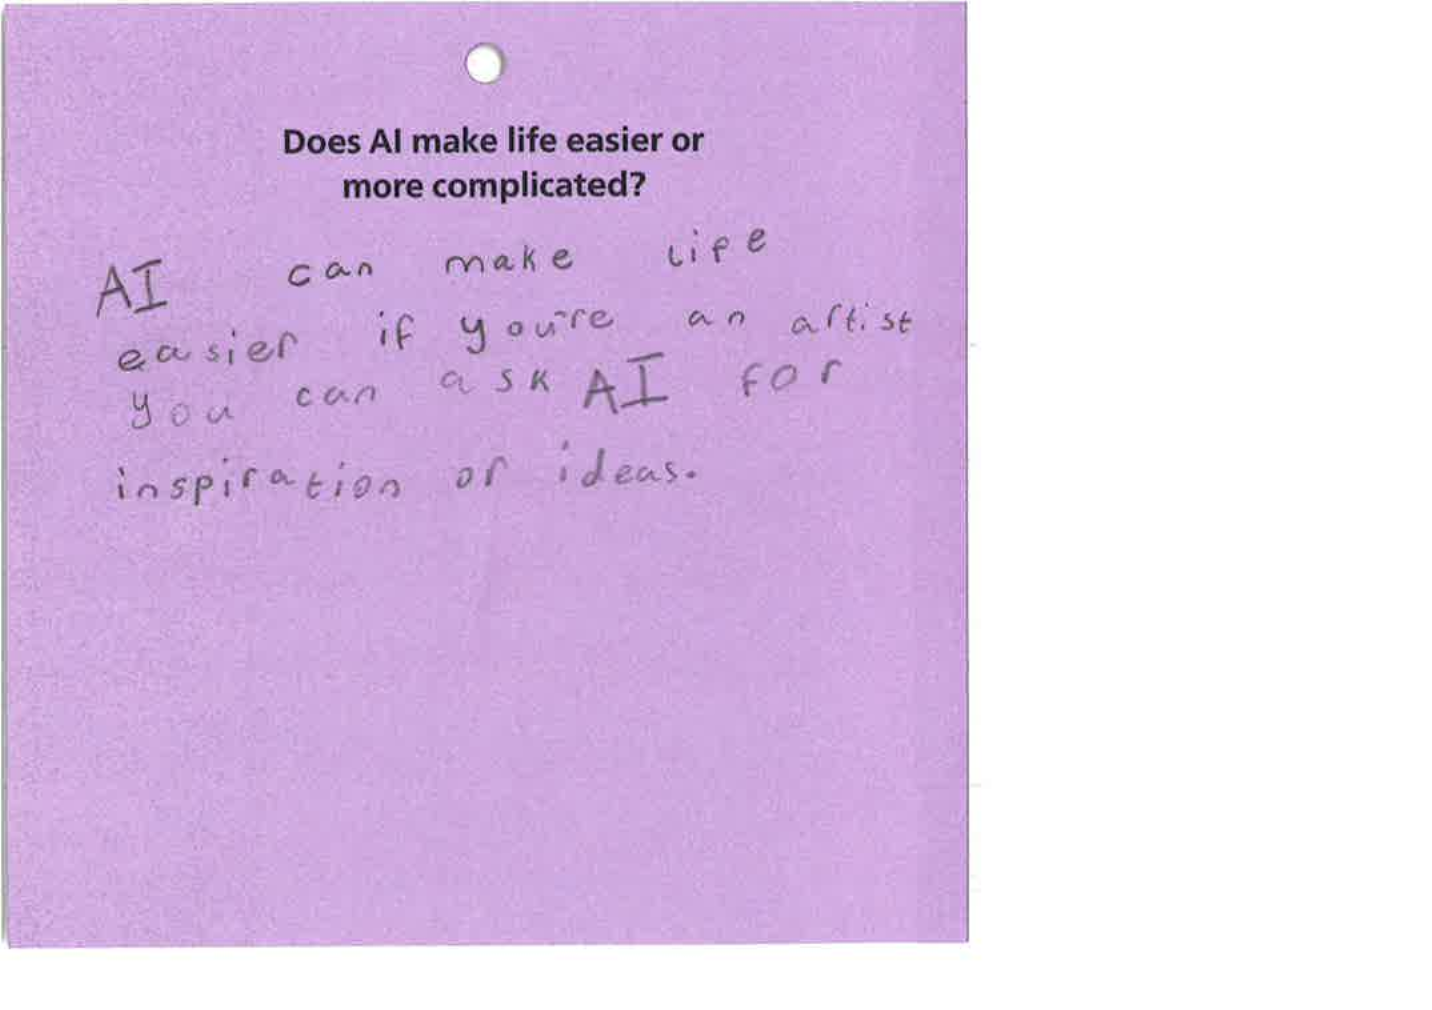 Does AI make life easier or
more complicated?
AI can make life
easier if you're an artist
you can ask AI for
inspiration or ideas.